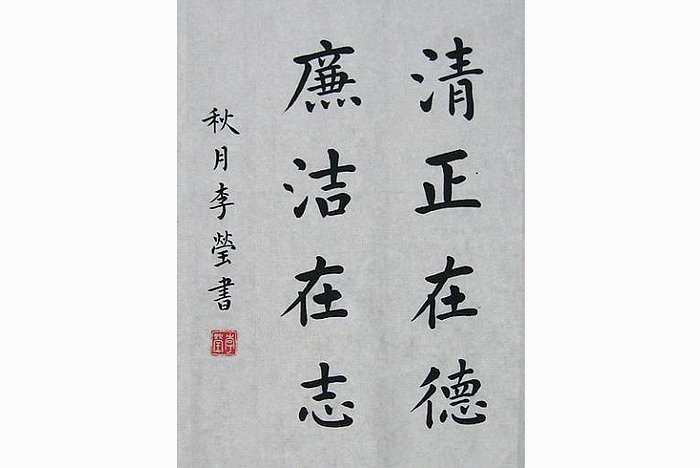 清正在德
廉洁在志
秋月李瑩書
李瑩